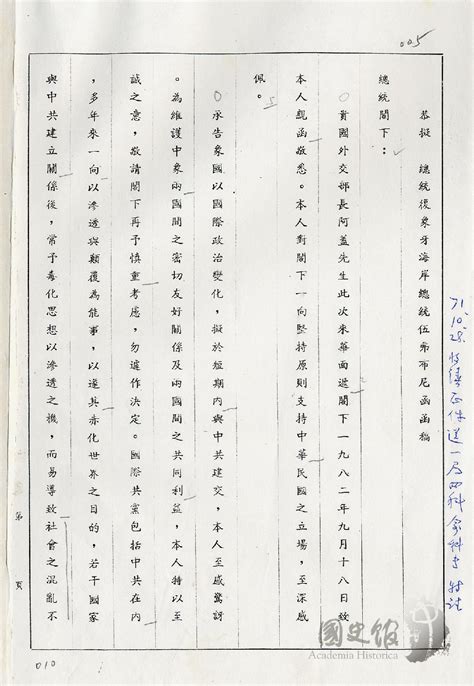 005
恭擬　總統復象牙海岸總統伍弗布尼函函稿
總統閣下：
貴國外交部長阿蓋先生此次來華面遞閣下一九八二年九月十八日致
本人親函敬悉。本人對閣下一向堅持原則支持中華民國之立場，至深感
佩。
承告象國以國際政治變化，擬於短期內與中共建交，本人至感驚訝
。為維護中象兩國間之密切友好關係及兩國間之共同利益，本人特以至
誠之意，敬請閣下再予慎重考慮，勿遽作決定。國際共黨包括中共在內
，多年來一向以滲透與顛覆為能事，以遂其赤化世界之目的，若干國家
與中共建立關係後，常予毒化思想以滲透之機，而易導致社會之混亂不
第　頁
71.10.28.
正件送一局
010
國史館
Academia Historica